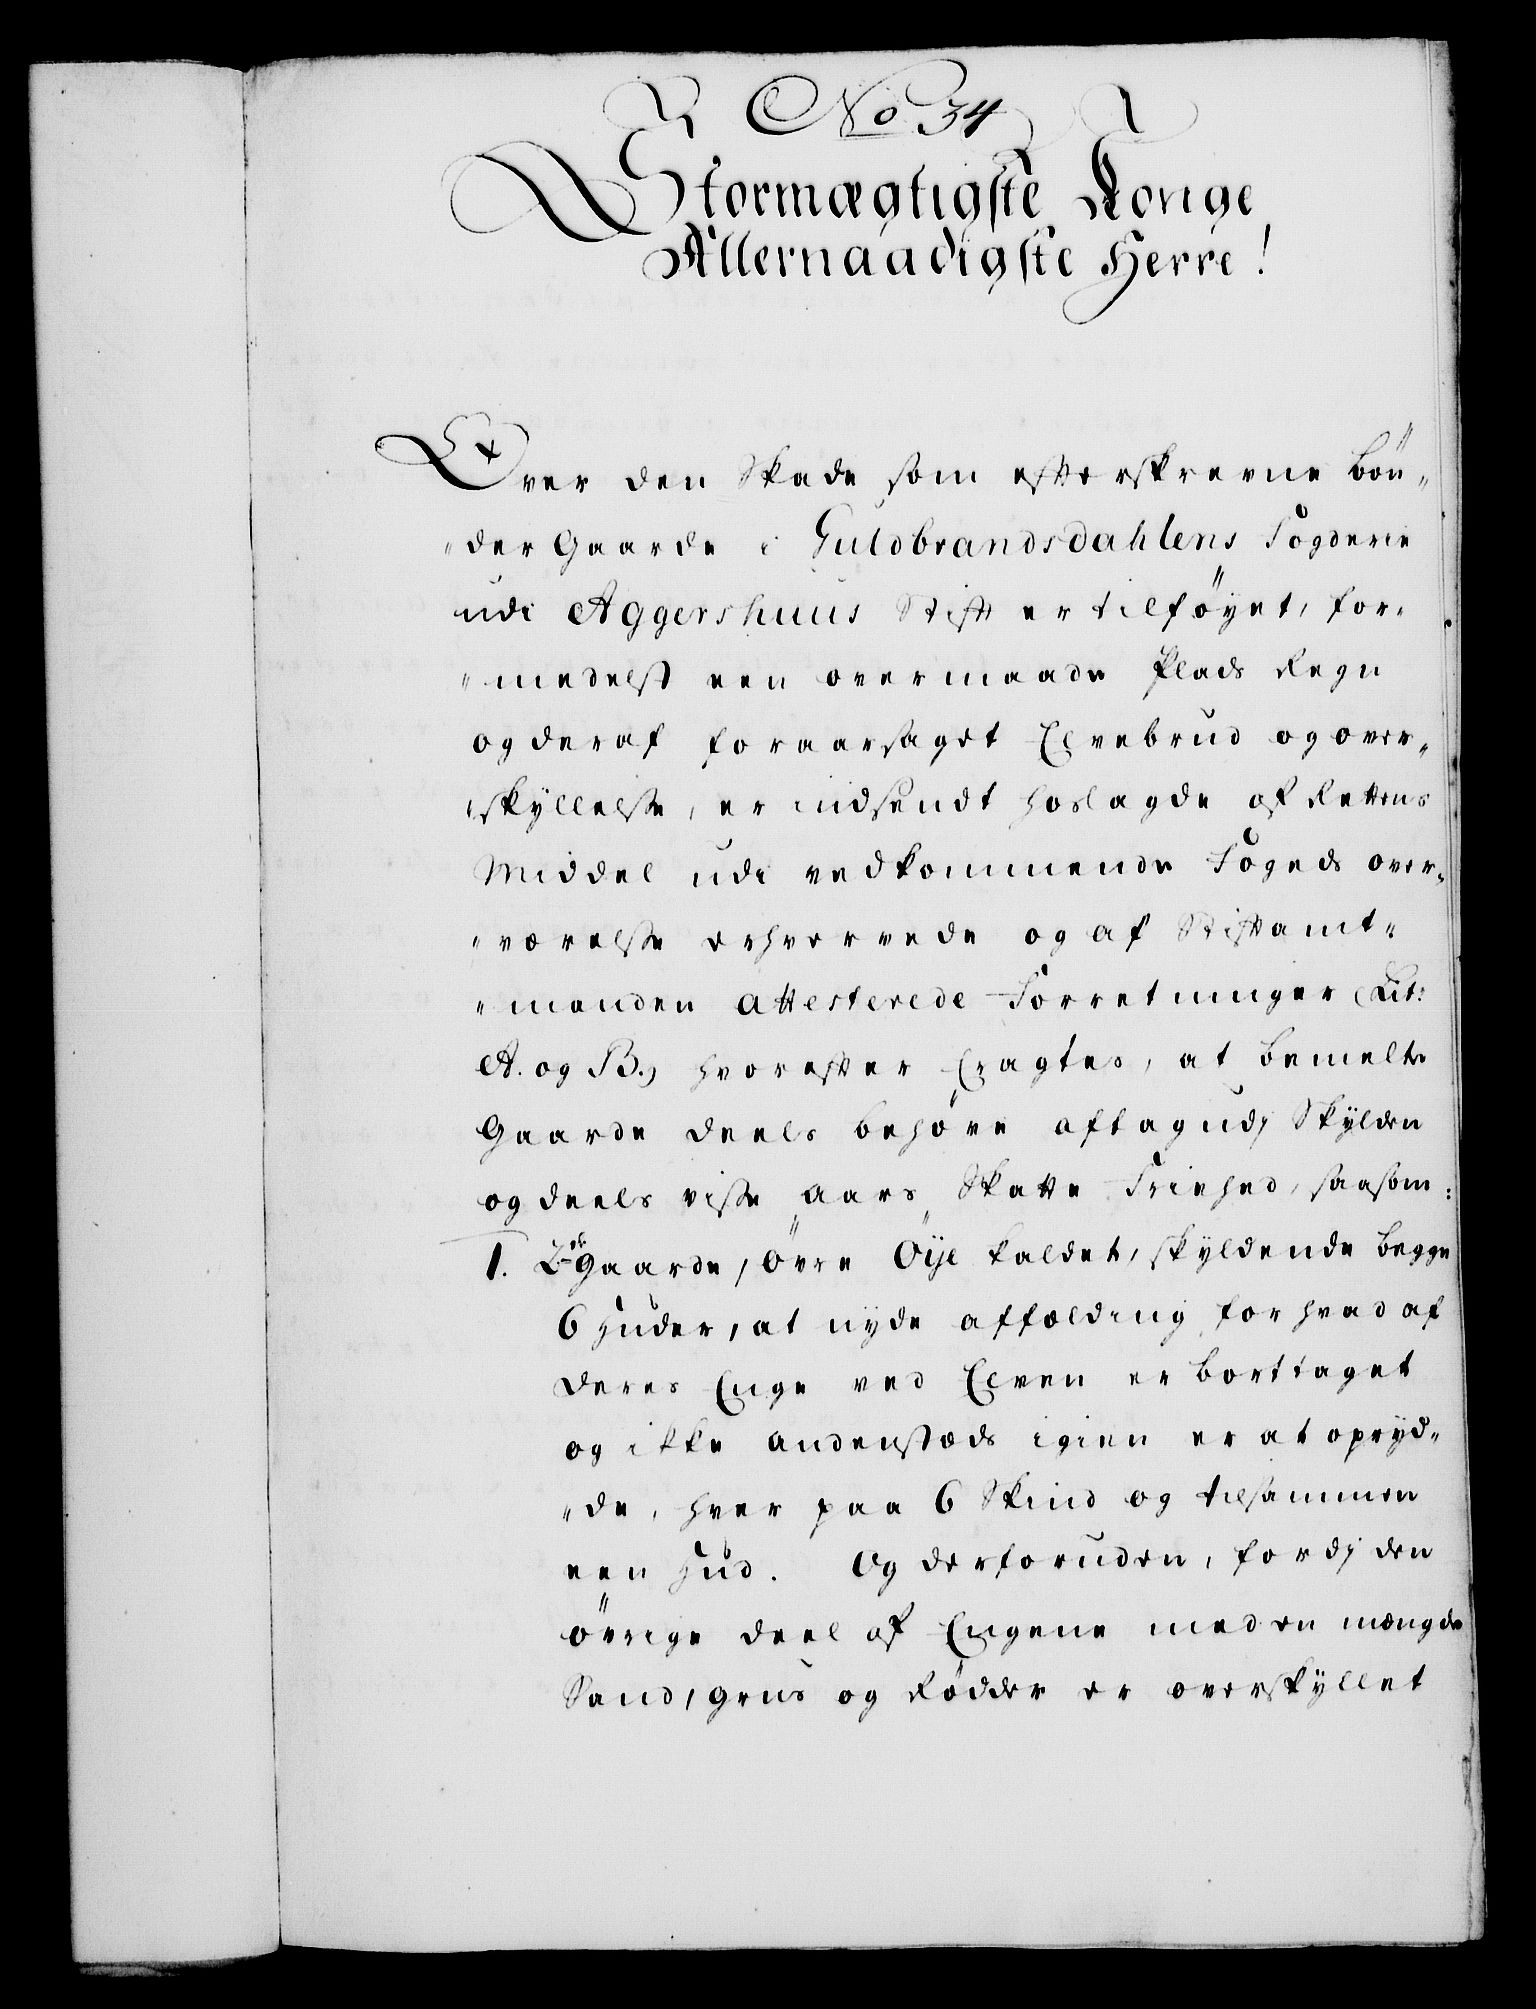 No 34
Stormægtigste Konge
Allernaadigste Herre!
Over den Skade som efterskrevne Bön„
„der Gaarde i Guldbrandsdahlens Fogderie
udi Aggershuus Stift er tilföyet, for„
„medelst een overmaade Plads Regn
og deraf foraarsaget Elvebrud og over„
„skyllelse, er indsendt hoslagde af Rettens
Middel udi vedkommende Fogeds over„
„værelse erhvervede og af Stiftamt„
„manden attesterede Forretninger (Lit:
A. og B.) hvorefter Eragtes, at bemelte
Gaarde deels behöve aftag udj Skylden
og deels visse Aars Skatte Friehed, saasom:
1. 2de Gaarde, Övre Öÿe kaldet, skyldende begge
6 Huder, at nyde affælding for hvad af
deres Enge ved Elven er borttaget
og ikke andenstæds igien er at opryd„
„de, hver paa 6 Skind og tilsammen
een Hud. Og derforuden, fordj den
övrige deel af Engene med en mængde
Sand, Grus og Rödder er overskyllet